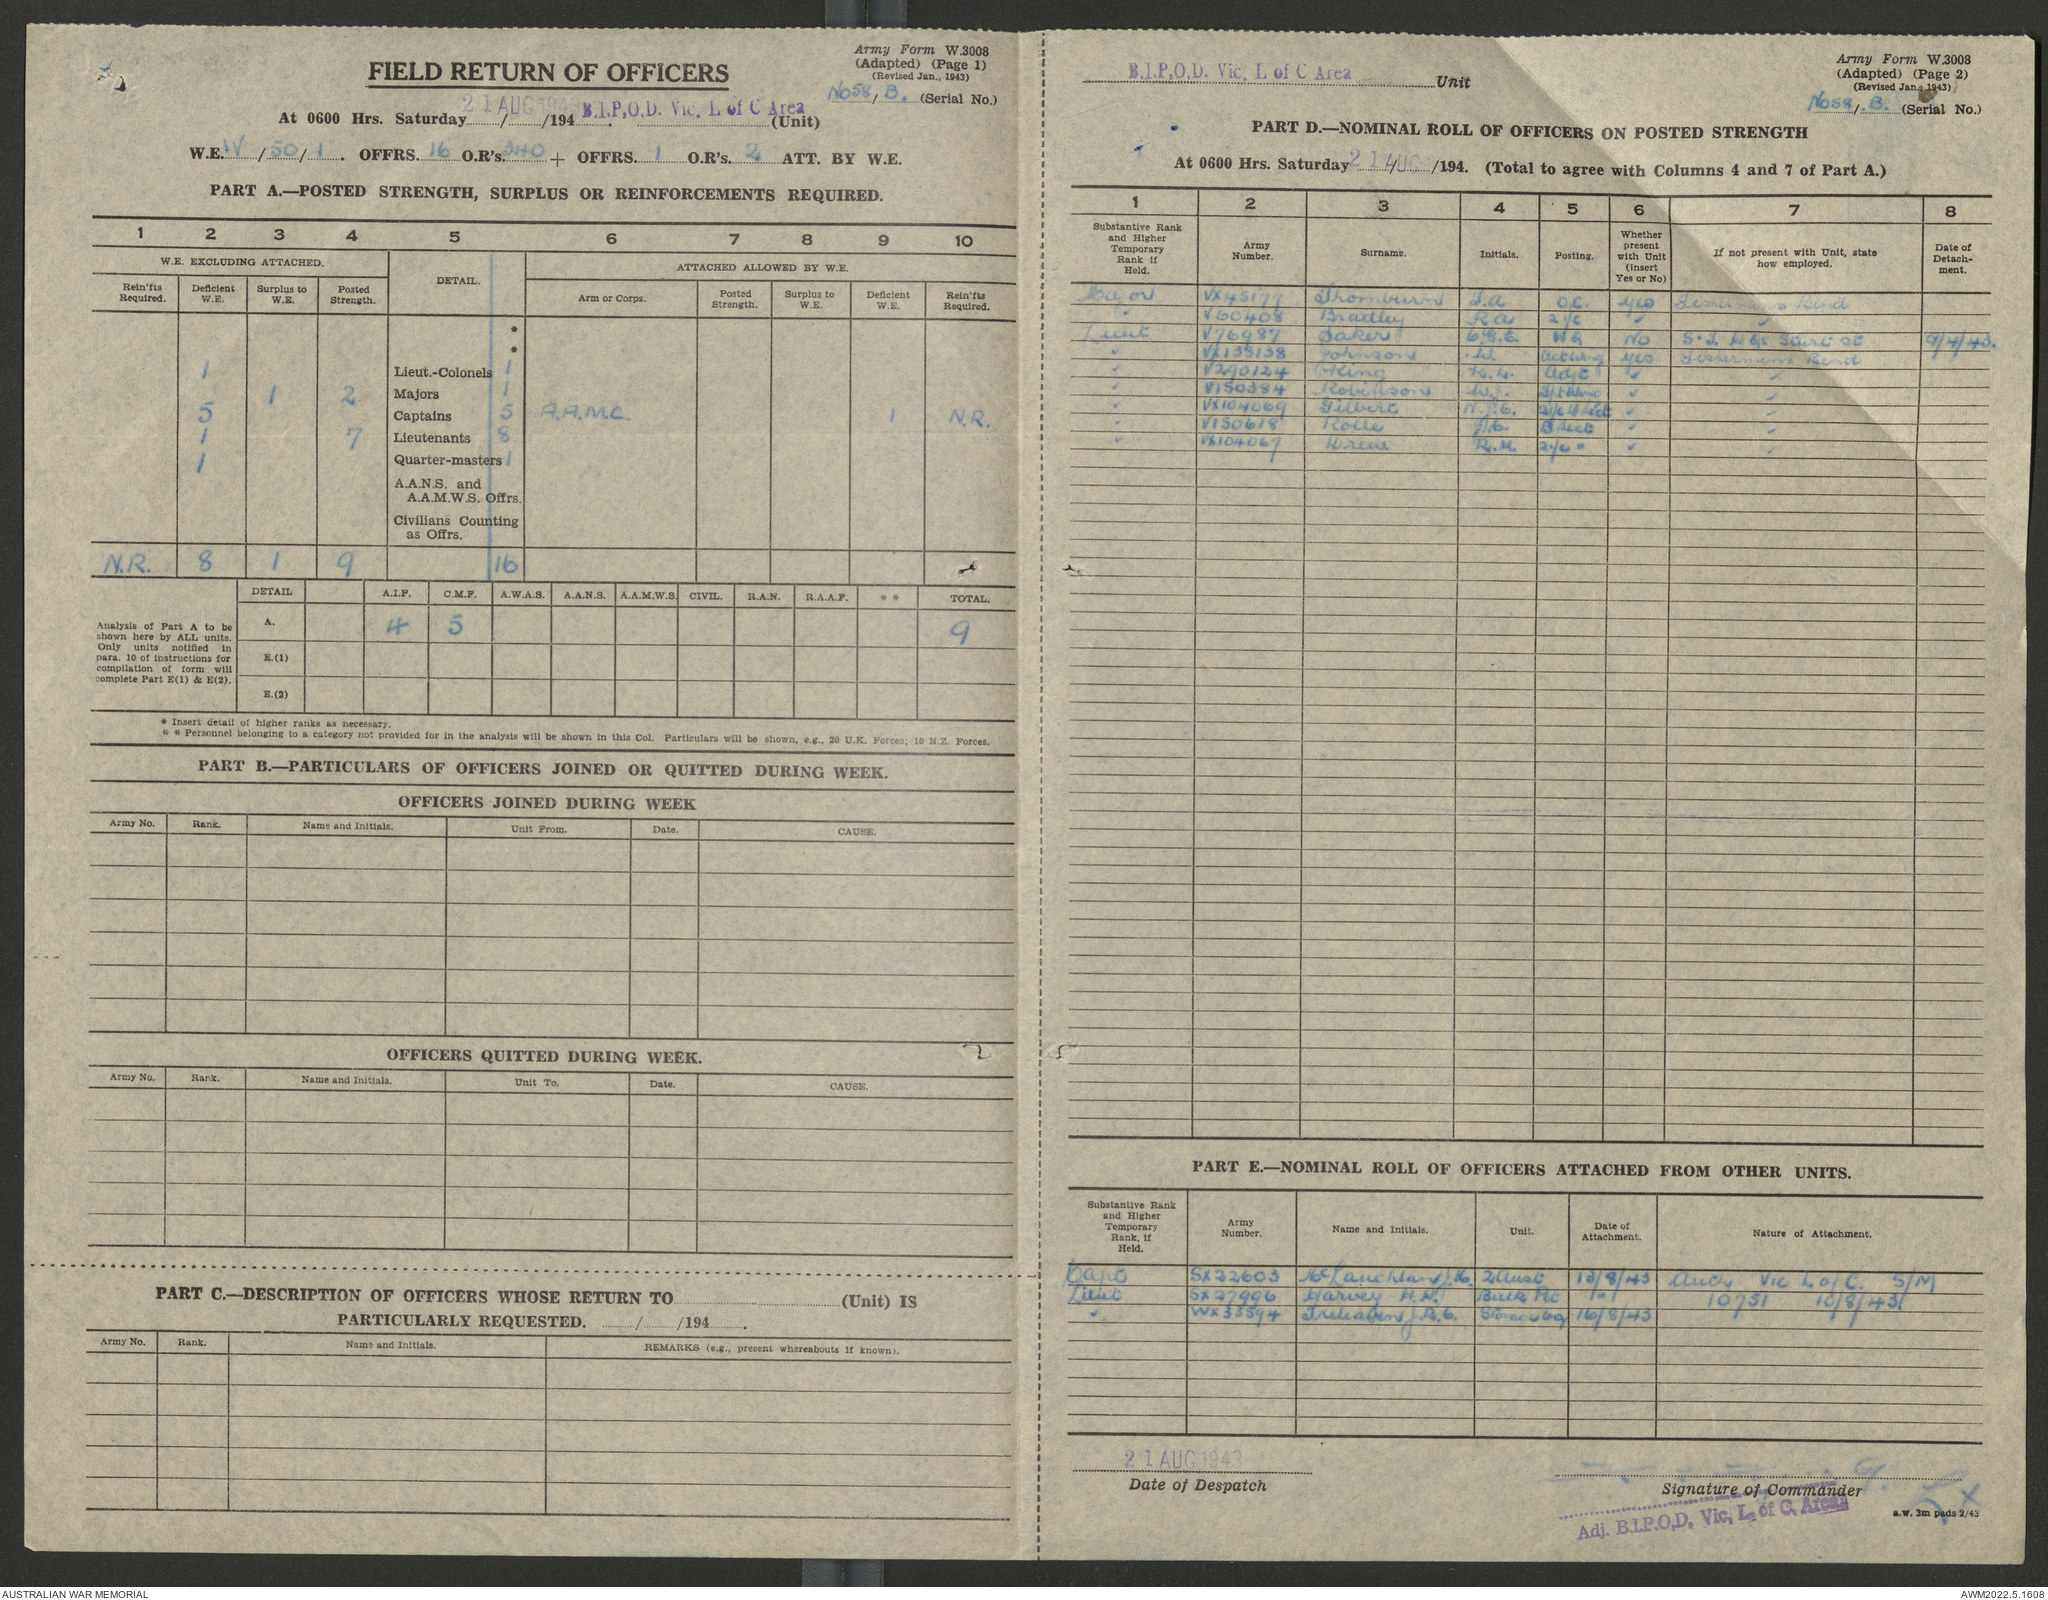 Army Form W.3008
(Adapted) (Page 1)
(Revised Jan., 1943)
No58/B. (Serial No.)
FIELD RETURN OF OFFICERS
At 0600 Hrs. Saturday 21 AUG 1943 /194 . B.I.P.O.D. Vic. L of C Area (Unit)
W.E. IV / 50 / 1 . OFFRS. 16 O.R's. 340 + OFFRS. 1 O.R's. 2 ATT. BY W.E.
PART A.—POSTED STRENGTH, SURPLUS OR REINFORCEMENTS REQUIRED.
1 2 3 4 5 6 7 8 9 10
W.E. EXCLUDING ATTACHED. DETAIL. ATTACHED ALLOWED BY W.E.
Rein'fts Required. Deficient W.E. Surplus to W.E. Posted Strength. Arm or Corps. Posted Strength. Surplus to W.E. Deficient W.E. Rein'fts Required.
*
*
1 Lieut.-Colonels 1
1 2 Majors 1
5 Captains 5 A.A.M.C. 1 N.R.
1 7 Lieutenants 8
1 Quarter-masters 1
A.A.N.S. and
A.A.M.W.S. Offrs.
Civilians Counting
as Offrs.
N.R. 8 1 9 16
DETAIL A.I.F. C.M.F. A.W.A.S. A.A.N.S. A.A.M.W.S. CIVIL. R.A.N. R.A.A.F. * * TOTAL.
Analysis of Part A to be
shown here by ALL units.
Only units notified in
para. 10 of instructions for
compilation of form will
complete Part E(1) & E(2).
A. 4 5 9
E.(1)
E.(2)
* Insert detail of higher ranks as necessary.
* * Personnel belonging to a category not provided for in the analysis will be shown in this Col. Particulars will be shown, e.g., 20 U.K. Forces; 10 N.Z. Forces.
PART B.—PARTICULARS OF OFFICERS JOINED OR QUITTED DURING WEEK.
OFFICERS JOINED DURING WEEK
Army No. Rank. Name and Initials. Unit From. Date. CAUSE.
OFFICERS QUITTED DURING WEEK.
Army No. Rank. Name and Initials. Unit To. Date. CAUSE.
PART C.—DESCRIPTION OF OFFICERS WHOSE RETURN TO (Unit) IS
PARTICULARLY REQUESTED. / /194 .
Army No. Rank. Name and Initials. REMARKS (e.g., present whereabouts if known).
B.I.P.O.D. Vic. L of C Area Unit
Army Form W.3008
(Adapted) (Page 2)
(Revised Jan., 1943)
No58/B. (Serial No.)
PART D.—NOMINAL ROLL OF OFFICERS ON POSTED STRENGTH
At 0600 Hrs. Saturday 21 AUG /194. (Total to agree with Columns 4 and 7 of Part A.)
1 2 3 4 5 6 7 8
Substantive Rank and Higher Temporary Rank if Held. Army Number. Surname. Initials. Posting. Whether present with Unit (insert Yes or No) If not present with Unit, state how employed. Date of Detach-ment.
Major VX45177 Thornburn O.C. yes Fishermens Bend
" V60408 Bradley R.A. 2i/c " "
Lieut V76987 Baker HQ No 9/4/43.
" VX135138 Johnson yes Fishermens Bend
" V290124 King Adjt " "
" V150384 Robinson W.J. " "
" VX104069 Gilbert " "
" V150618 " "
" VX104067 R.H. 2i/c " " "
PART E.—NOMINAL ROLL OF OFFICERS ATTACHED FROM OTHER UNITS.
Substantive Rank and Higher Temporary Rank, if Held. Army Number. Name and Initials. Unit. Date of Attachment. Nature of Attachment.
Capt SX22603 McLauchlan J.H. 2 Aust 13/8/43 Auth Vic L of C. S/M
Lieut SX27996 Harvey H.H. Bulk Pet " 10751 10/8/43.
" WX33594 Treleaven J.R.G. Storage Coy 16/8/43
21 AUG 1943
Date of Despatch
Signature of Commander
Adj. B.I.P.O.D. Vic. L. of C. Area
a.w. 3m pads 2/43
AUSTRALIAN WAR MEMORIAL
AWM2022.5.1608